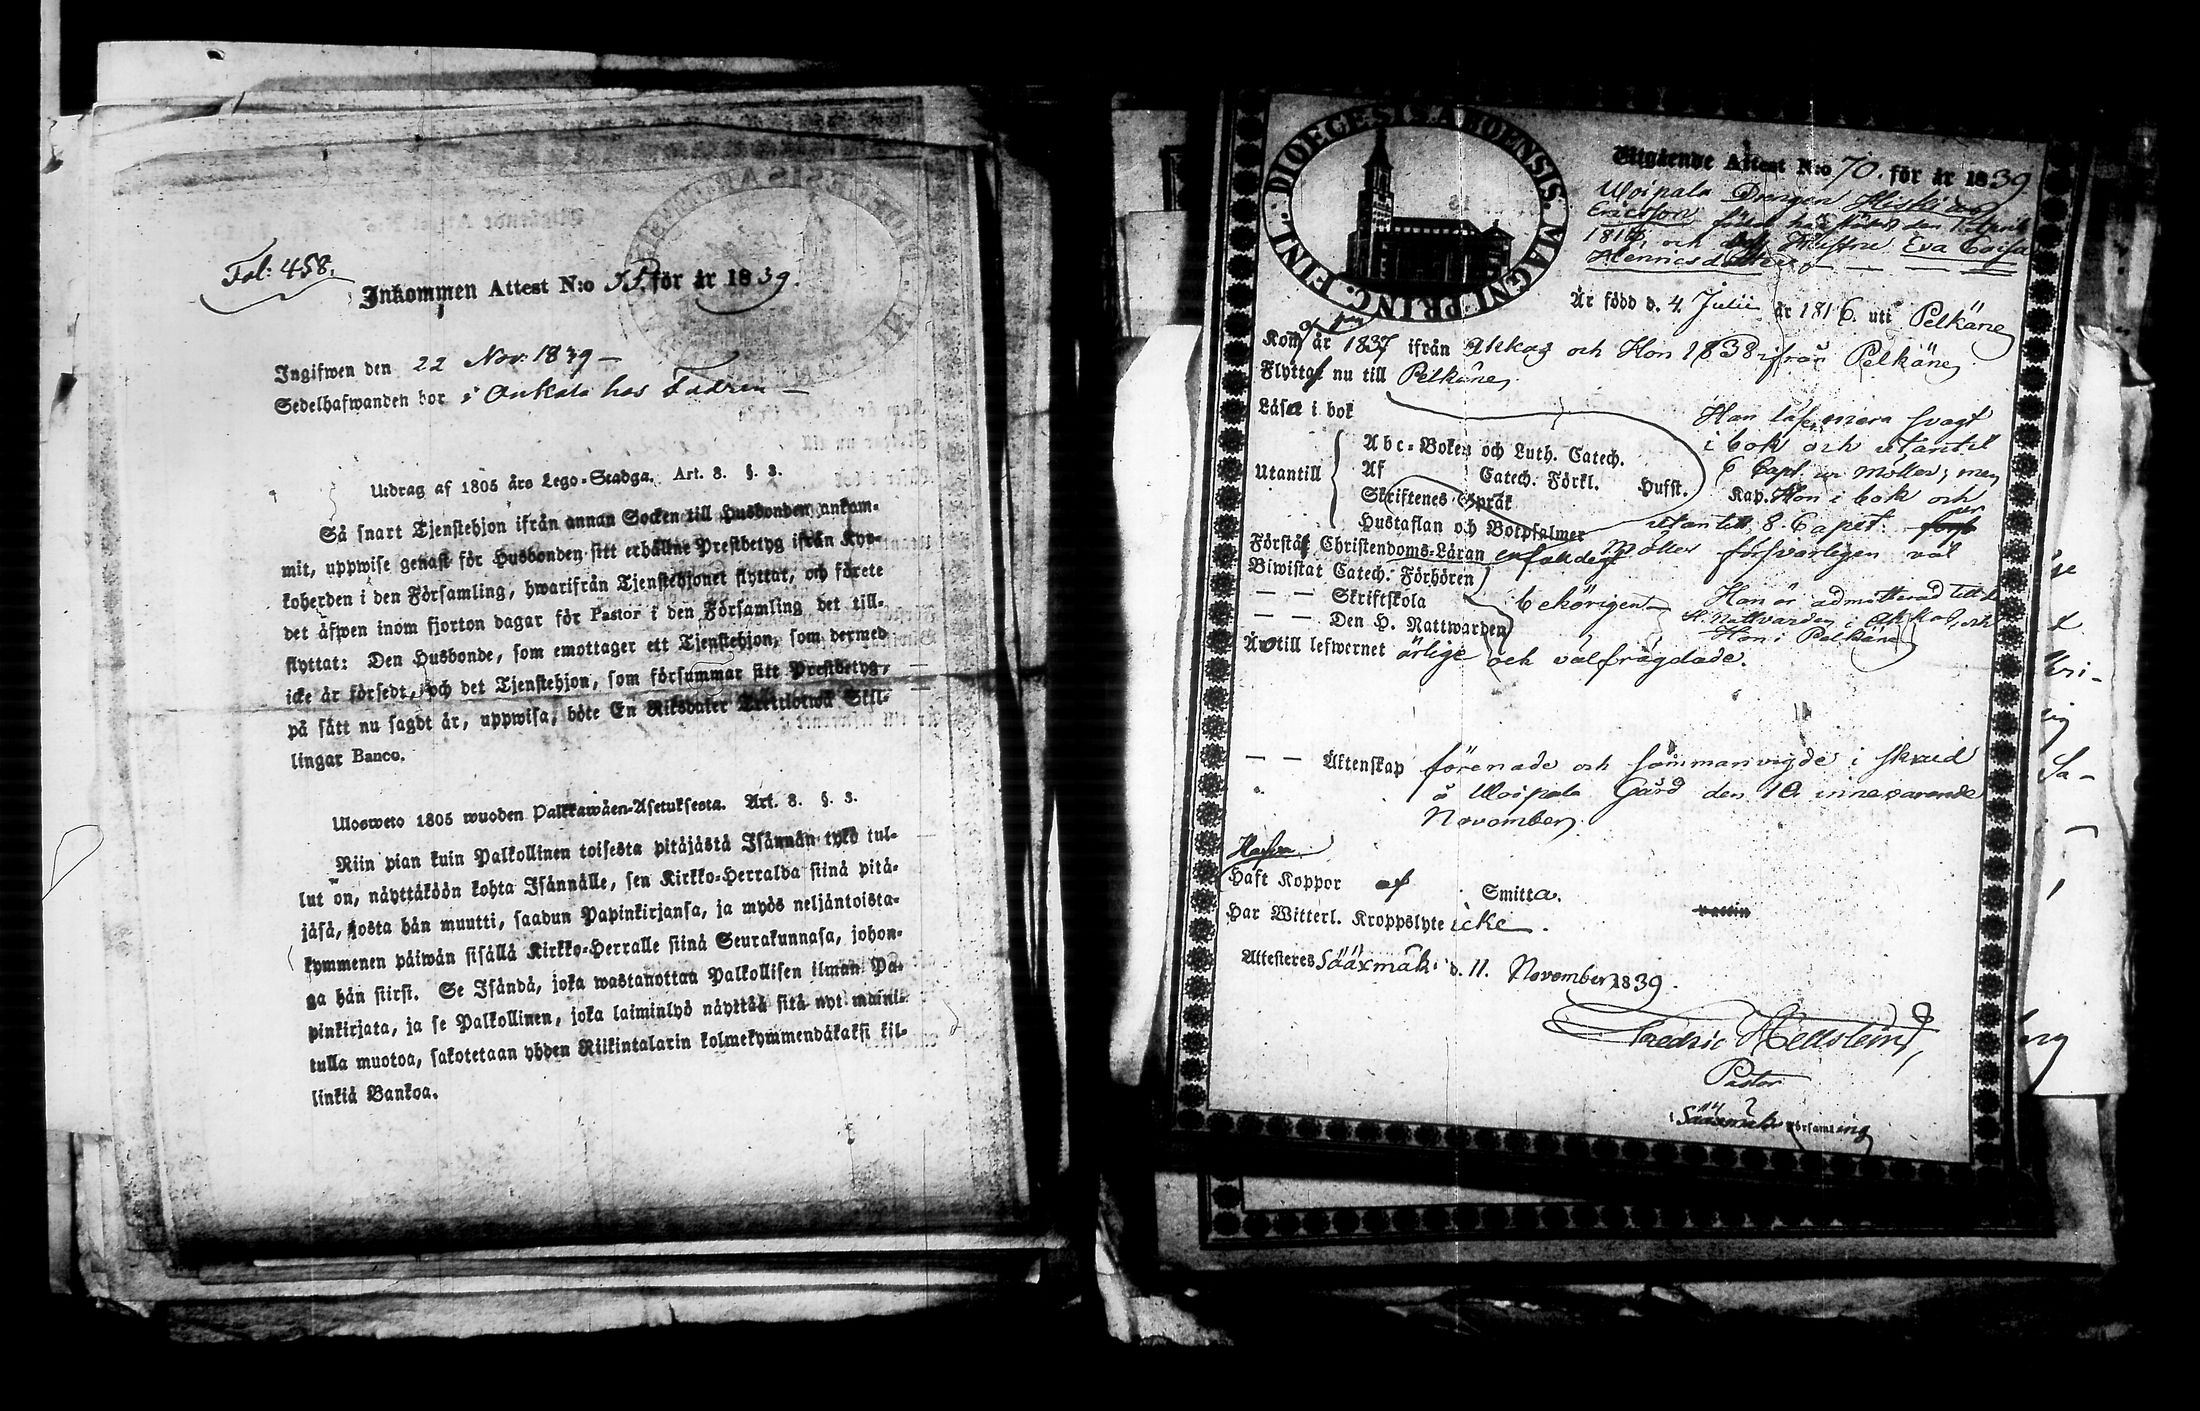 Fol: 458.
Inkommen Attest N:o 55. för år 1839.
Ingifwen den 22 Nov. 1839 —
Sedelhafwanden bor i Onkala hos Fadren —
Utdrag af 1805 års Lego-Stadga. Art. 8. §. 3.
Så snart Tjenstehjon ifrån annan Socken till Husbonden ankom-
mit, uppwise genast för Husbonden sitt erhållne Prestbetyg ifrån Kyr-
koherden i den Församling, hwarifrån Tjenstehjonet flyttat, och förete
det äfwen inom fjorton dagar för Pastor i den Församling det till-
flyttat: Den Husbonde, som emottager ett Tjenstehjon, som dermed
icke är försedt, och det Tjenstehjon, som försummar sitt Prestbetyg,
på sätt nu sagdt är, uppwisa, böte En Riksdaler Trettiotwå Skil-
lingar Banco.
Ulosweto 1805 wuoden Palkkawäen-Asetuksesta. Art. 8. §. 3.
Niin pian kuin Palkollinen toisesta pitäjästä Isännän tykö tul-
lut on, näyttäköön kohta Isännälle, sen Kirkko-Herralda siinä pitä-
jäsä, josta hän muutti, saadun Papinkirjansa, ja myös neljäntoista-
kymmenen päiwän sisällä Kirkko-Herralle siinä Seurakunnasa, johon-
ga hän siirsi. Se Isändä, joka wastanottaa Palkollisen ilman Pa-
pinkirjata, ja se Palkollinen, joka laiminlyö näyttää sitä nyt maini-
tulla muotoa, sakotetaan yhden Riikintalarin kolmekymmendäkaksi kil-
linkiä Bankoa.
DIOECESIS ABOENSIS. MAGNI PRINC. FINL.
Utgående Attest N:o 70. för år 1839
Uoipala Drengen Hiskias
Ericsson född den
181 och Hustru Eva Lovisa
Henricsdotter — — —
Är född d. 4 Julii år 1816. uti Pelkäne
Kom år 1837 ifrån Akkas och Hon 1838 ifrån Pelkäne
Flytta nu till Pelkäne
Läsa i bok
Han läser svagt
i bok och utantill
Abc-Boken och Luth. Catech.
6 Capt. ur Möller; men
Utantill Af Catech. Förkl. Hufst. Kap. Hon i bok och
Skriftenes Språk
utantill 8. Capit. ur
Hustaflan och Botpsalmer
Förstå Christendoms-Läran enfaldigt Möller försvarligen väl
Biwistat Catech. Förhören
— — Skriftskola behörigen — Han är admitterad till
— — Den H. Nattwarden H. Nattvarden i Akkas, och
Hon i Pelkäne
Äro till lefwernet ärlige och välfrägdade.
— — Äktenskap förenade och sammanvigde i skrud
å Uoipala Gård den 10 innevarande
November.
Hafva
Haft Koppor af Smitta.
Har Witterl. Kroppslyte icke.
Attesteres Sääxmäki d. 11. November 1839.
Fredric Hellström
Pastor
i Sääxmäki Församling